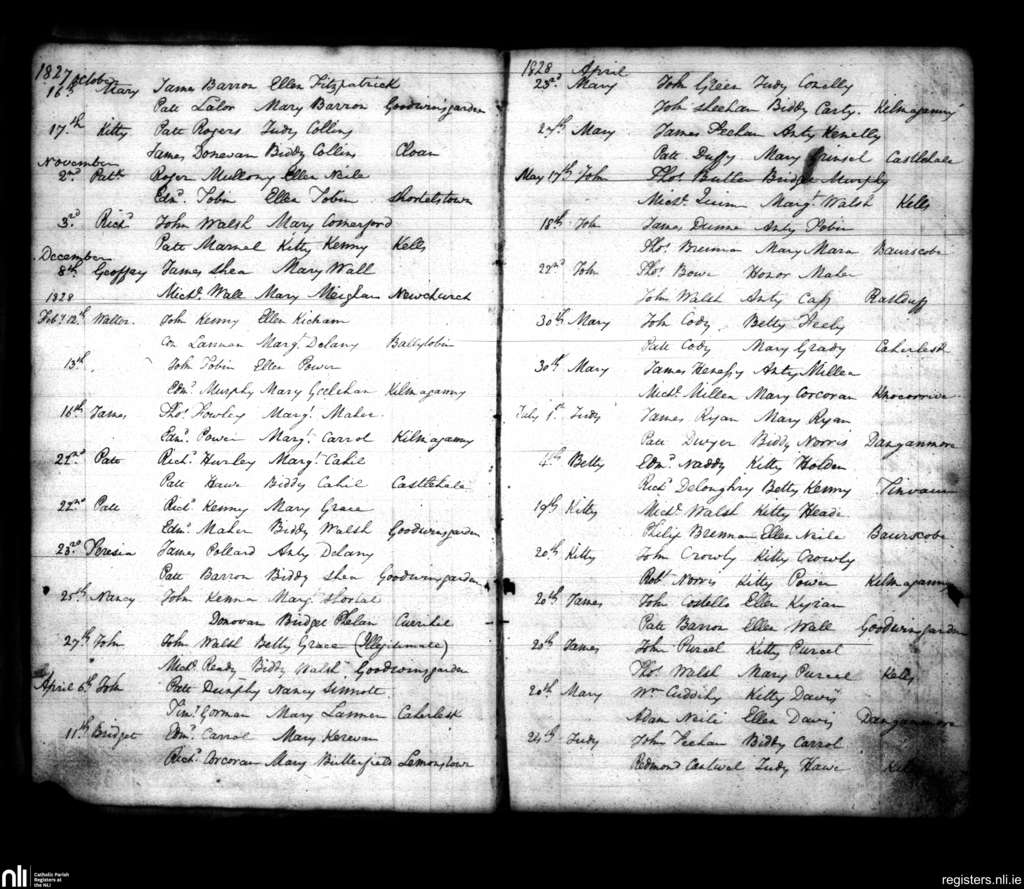 1827 October
16th Mary James Barron Ellen Fitzpatrick
Patt Lalor Mary Barron Goodwinsgarden
17th Kitty Patt Rogers Judy Collins
James Donevan Biddy Collins Cloan
November
2nd Patt Roger Mullony Ellen Neile
Edmd Tobin Ellen Tobin Shortelstown
3rd Richd John Walsh Mary Comerford
Patt Marnel Kitty Kenny Kells
December
8th Geoffrey James Shea Mary Wall
Michl Wall Mary Meighan Newchurch
1828
Feby 12th Walter John Kenny Ellen Kicham
Con Lannan Margt Delany Ballytobin
13th John Tobin Ellen Power
Edmd Murphy Mary Geelehan Kilmaganny
16th James Thos Howley Margt Maher
Edmd Power Margt Carrol Kilmaganny
22nd Patt Richd Hurley Margt Cahil
Patt Hawe Biddy Cahil Castlehale
22nd Patt Richd Kenny Mary Grace
Edmd Maher Biddy Walsh Goodwinsgarden
23rd Teresia James Pollard Anty Delany
Patt Barron Biddy Shea Goodwinsgarden
25th Nancy John Kenna Margt Shortal
Donovan Bridget Phelan
27th John John Walsh Betty Grace (Illegitimate)
Michl Ready Biddy Walsh Goodwinsgarden
April 6th John Patt Dunphy Nancy Sinnott
Timy Gorman Mary Lannen Caherlesk
11th Bridget Edmd Carrol Mary Kerevan
Richd Corcoran Mary Butterfield Lemonstown
1828 April
23rd Mary John Green Judy Conelly
John Sheehan Biddy Carty Kilmaganny
24th Mary James Feehan Anty Kenelly
Patt Duffy Mary Castlehale
May 17th John Thos Butler Bridget Murphy
Michl Quinn Margt Walsh Kells
18th John James Dunne Anty Tobin
Thos Brennan Mary Mara Baurscobe
22nd John Thos Bowe Honor Maher
John Walsh Anty Cass Rathduff
30th Mary John Cody Betty Feeley
Patt Cody Mary Grady Caherlesk
30th Mary James Henessy Anty Millea
Michl Millea Mary Corcoran
July 1st Judy James Ryan Mary Ryan
Patt Dwyer Biddy Norris Danganmore
4th Betty Edmd Naddy Kitty Holden
Richd Deloughry Betty Kenny Tinvaun
19th Kitty Michl Walsh Kitty Heade
Philip Brennan Ellen Neile Baurscobe
20th Kitty John Crowly Kitty Crowly
Robt Norris Kitty Power Kilmaganny
20th James John Costello Ellen Kyrian
Patt Barron Ellen Wall Goodwinsgarden
20th James John Purcel Kitty Purcel
Thos Walsh Mary Purcel Kells
20th Mary Wm Cuddihy Kitty Davis
Adam Neile Ellen Davis Danganmore
24th Judy John Feehan Biddy Carrol
Redmond Cantwel Judy Hawe
nli Catholic Parish Registers at the NLI
registers.nli.ie